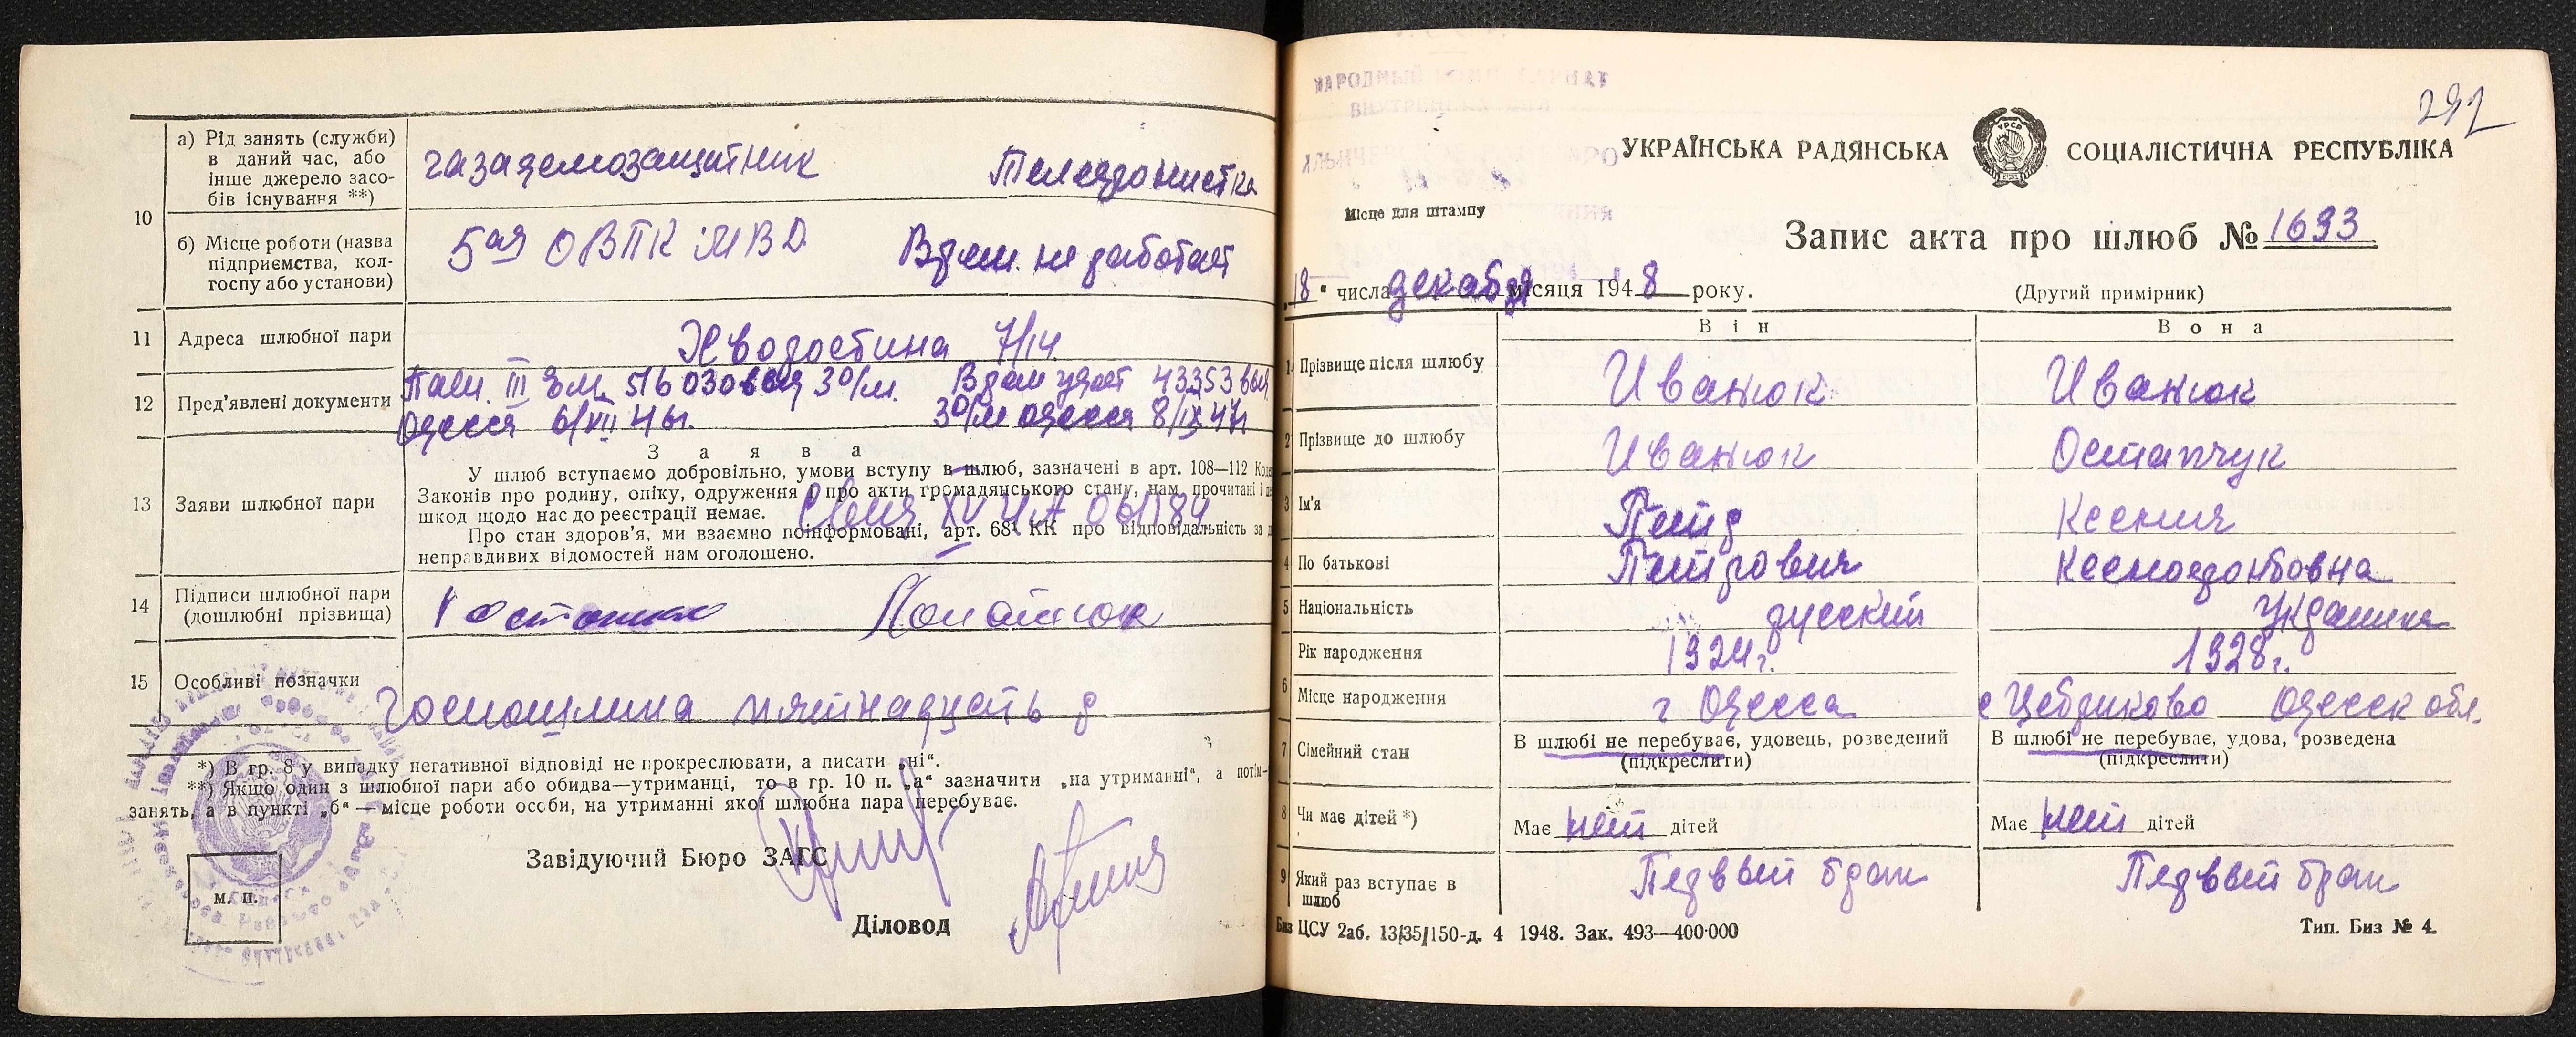 а) Рід занять (служби)
в даний час, або
інше джерело засо-
бів існування **)
Телефонистка
10
б) Місце роботи (назва
підприємства, кол-
госпу або установи)
5ая ОВПК МВД
Врем. не работает
11 Адреса шлюбної пари
Хворостина 7/14
12 Пред'явлені документи
Пасп. III ЭМ 516030 выд 3 о/м. Врем удост 43353 выд
Одесся 6/VII 46г. 3 о/м Одесся 8/IX 47г
З а я в а
13 Заяви шлюбної пари
У шлюб вступаємо добровільно, умови вступу в шлюб, зазначені в арт. 108—112
Законів про родину, опіку, одруження і про акти громадянського стану, нам прочитані і
шкод щодо нас до реєстрації немає.
061184
Про стан здоров'я, ми взаємно поінформовані, арт. 68¹ КК про відповідальність за
неправдивих відомостей нам оголошено.
14 Підписи шлюбної пари
(дошлюбні прізвища)
15 Особливі позначки
Госпошлина пятнадцать р
*) В гр. 8 у випадку негативної відповіді не прокреслювати, а писати „ні“.
**) Якщо один з шлюбної пари або обидва—утриманці, то в гр. 10 п. „а“ зазначити „на утриманні“, а потім—
занять, а в пункті „б“ — місце роботи особи, на утриманні якої шлюбна пара перебуває.
Завідуючий Бюро ЗАГС
м. п.
Діловод
НАРОДНЫЙ
292
УКРАЇНСЬКА РАДЯНСЬКА СОЦІАЛІСТИЧНА РЕСПУБЛІКА
Місце для штампу
Запис акта про шлюб № 1693
18 " числа декабря місяця 1948 року.
(Другий примірник)
В і н В о н а
1 Прізвище після шлюбу Иванюк Иванюк
2 Прізвище до шлюбу Иванюк Остапчук
3 Ім'я Петр Ксения
4 По батькові Петрович Ксенофонтовна
5 Національність русский Украинка
Рік народження 1924г. 1928г.
6 Місце народження г Одесса с Цебриково Одесск обл.
7 Сімейний стан В шлюбі не перебуває, удовець, розведений В шлюбі не перебуває, удова, розведена
(підкреслити) (підкреслити)
8 Чи має дітей *) Має нет дітей Має нет дітей
9 Який раз вступає в
шлюб
Первый брак Первый брак
Биз ЦСУ 2аб. 13/35/150-д. 4 1948. Зак. 493—400·000 Тип. Биз № 4.